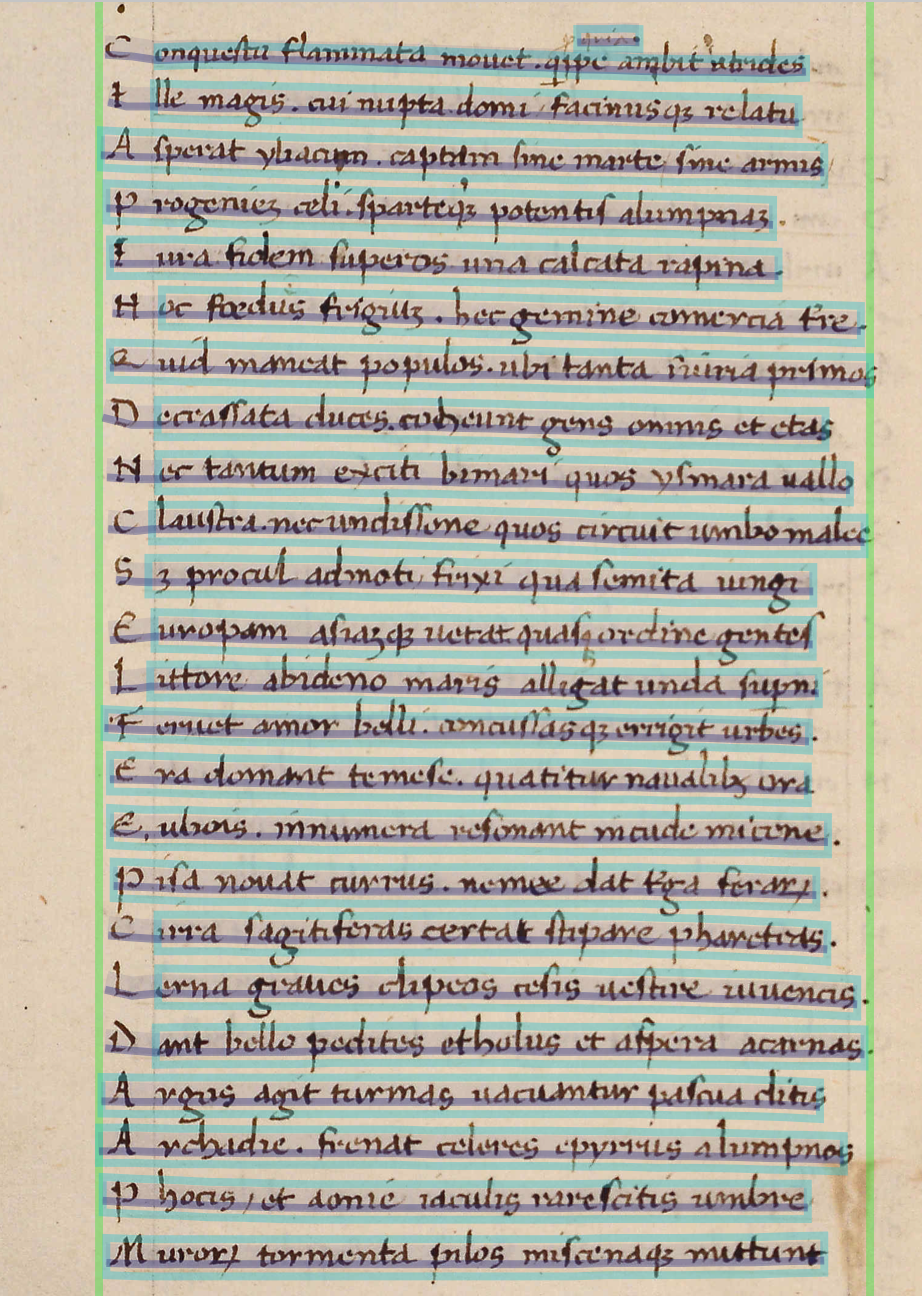 quix
Conquestu flammata mouet . qͥpe ambit atrides
Ille magis . cui nupta domi / facinusqꝫ relatu
Asperat yliacum . captam sine marte / sine armis
Progenieꝫ celi . sparteqꝫ potentis alumpnaꝫ .
Iura fidem superos una calcata rapina .
Hoc fœdus frigiuꝫ . hec gemine comercia tr̄e .
Quid maneat populos . ubi tanta iniuria primos
Decrassata duces coheunt gens omnis et etas
Nec tantum exciti bimari quos ysmara uallo
Claustra . nec undissone quos circuit umbo malee
Sꝫ procul admoti frixi qua semita iungi
Europam asiaꝫqꝫ uetat quasqꝫ ordine gentes
Littore abideno maris alligat unda suꝑni
Feruet amor belli . concussasqꝫ errigit urbes .
Era domant temese . quatitur naualibꝫ ora
Eubois . innumera resonant incude micene .
Pisa nouat currus . nemee dat t̄ga feraꝝ .
Cirra sagitiferas certat stipare pharetras .
Lerna graues clipeos cesis uestire iuuencis .
Dant bello pedites etholus et aspera acarnas .
Argus agit turmas uacuantur pascua ditis
Archadie . frenat celeres epyrrus alumpnos
Phocis / et aonie iaculis rarescitis umbre
Muroꝝ tormenta pilos miscenaqꝫ mittunt